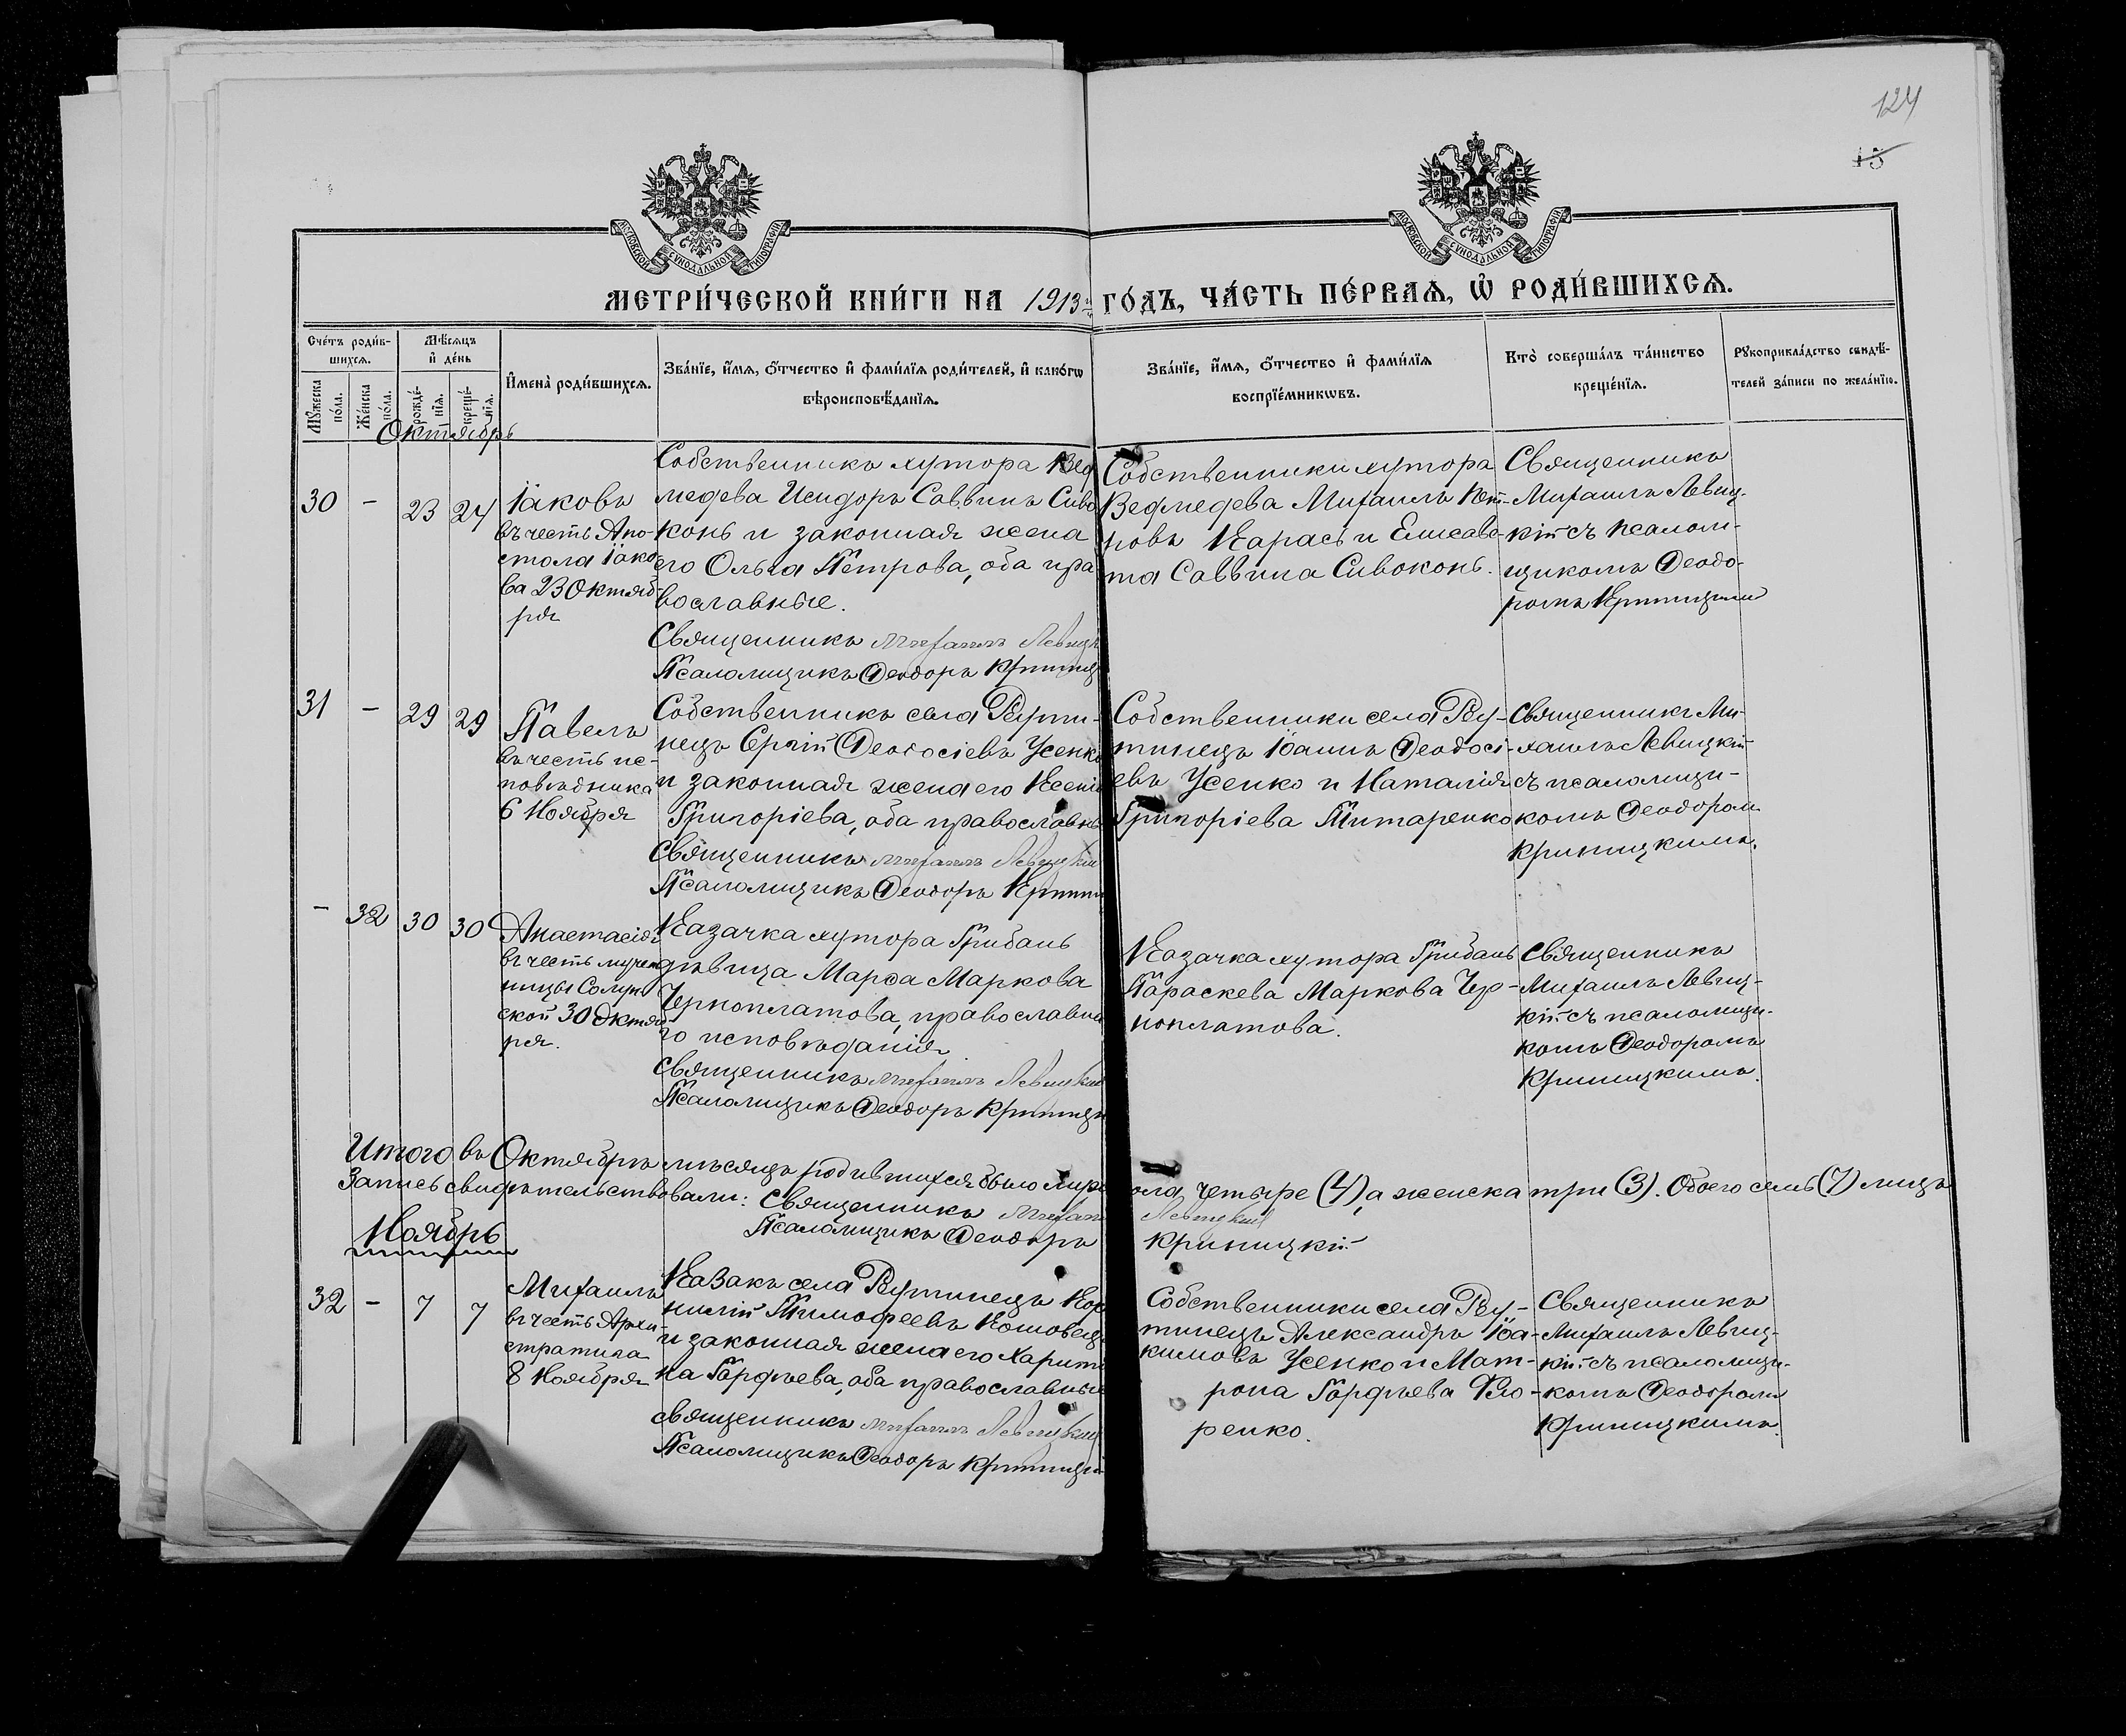 124
15
МОСКОВСКОЙ СѴНОДАЛЬНОЙ ТИПОГРАФІИ
МОСКОВСКОЙ СѴНОДАЛЬНОЙ ТИПОГРАФІИ
МЕТРИ́ЧЕСКОЙ КНИ́ГИ НА 1913 й ГО́ДЪ, ЧА́СТЬ ПЕ́РВАѦ, Ѡ҆ РОДИ́ВШИХСѦ.
Сче́тъ роди́в-
шихсѧ.
Мꙋ́жеска
по́ла.
Же́нска
по́ла.
Мѣ́сѧцъ
и҆ де́нь
рожде́-
нїѧ.
креще́-
нїѧ.
И҆мена̀ роди́вшихсѧ.
Зва́нїе, и҆́мѧ, ѻ҆́тчество и҆ фами́лїѧ роди́телей, и҆ како́гѡ
вѣроисповѣ́данїѧ.
Зва́нїе, и҆́мѧ, ѻ҆́тчество и҆ фами́лїѧ
воспрїе́мникѡвъ.
Кто̀ соверша́лъ та́инство
креще́нїѧ.
Рꙋкоприкла́дство свидѣ́-
телей за́писи по жела́нїю.
Октябрь
30 - 23 24
Іаковъ
въ честь Апо-
стола Іако
ва 23 Октяб-
ря
Собственникъ хутора Вед
медева Исидоръ Саввинъ Сиво
конь и законная жена
его Ольга Петрова, оба пра
вославные.
Священникъ Михаилъ Левицк
Псаломщикъ Ѳеодоръ Криниц
Собственники хутора
Ведмедева Михаилъ Пет-
ровъ Карась и Елисаве-
та Саввина Сивоконь.
Священникъ
Михаилъ Левиц-
кій съ псалом-
щикомъ Ѳеодо-
ромъ Криницкимъ
31 - 29 29
Павелъ
въ честь ис-
повѣдника
6 Ноября
Собственникъ села Рути-
нецъ Сергій Ѳеодосіевъ Усенко
и законная жена его Ксенія
Григоріева, оба православны
Священникъ Михаилъ Левицкій
Псаломщикъ Ѳеодоръ Криниц
Собственники села Ру-
тинецъ Іоаннъ Ѳеодосі-
евъ Усенко и Наталія
Григоріева Титаренко
Священникъ Ми-
хаилъ Левицкій
съ псаломщи-
комъ Ѳеодоромъ
Криницкимъ.
- 32 30 30
Анастасія
въ честь мучен
ницы Солун
ской 30 Октяб
ря.
Казачка хутора Грибань
дѣвица Марѳа Маркова
Черноплатова, православна
го исповѣданія.
Священникъ Михаилъ Левицкій
Псаломщикъ Ѳеодоръ Криницк
Казачка хутора Грибань
Параскева Маркова Чер-
ноплатова.
Священникъ
Михаилъ Левиц-
кій съ псаломщи-
комъ Ѳеодоромъ
Криницкимъ.
Итого въ Октябрѣ мѣсяцѣ родившихся было муж ола, четыре (4), а женска три (3). Обоего семь (7) лицъ
Запись свидѣтельствовали: Священникъ Михаилъ Левицкій
Псаломщикъ Ѳеодоръ Криницкій
Ноябрь
32 - 7 7
Михаилъ
въ честь Архи-
стратига
8 Ноября
Казакъ села Рутинецъ Кор
нилій Тимоѳеевъ Кошовець
и законная жена его Харити
на Гордѣева, оба православные
Священникъ Михаилъ Левицкій
Псаломщикъ Ѳеодоръ Криницкі
Собственники села Ру-
тинецъ Александръ Іоа-
кимовъ Усенко и Мат-
рона Гордѣева Фло-
ренко.
Священникъ
Михаилъ Левиц-
кій съ псаломщи-
комъ Ѳеодоромъ
Криницкимъ.